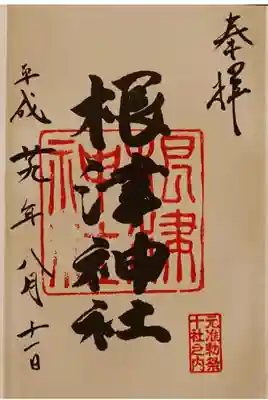 奉拝
根津神社
根津
神社
平成廿九年八月十一日
元准勅祭
十社之内